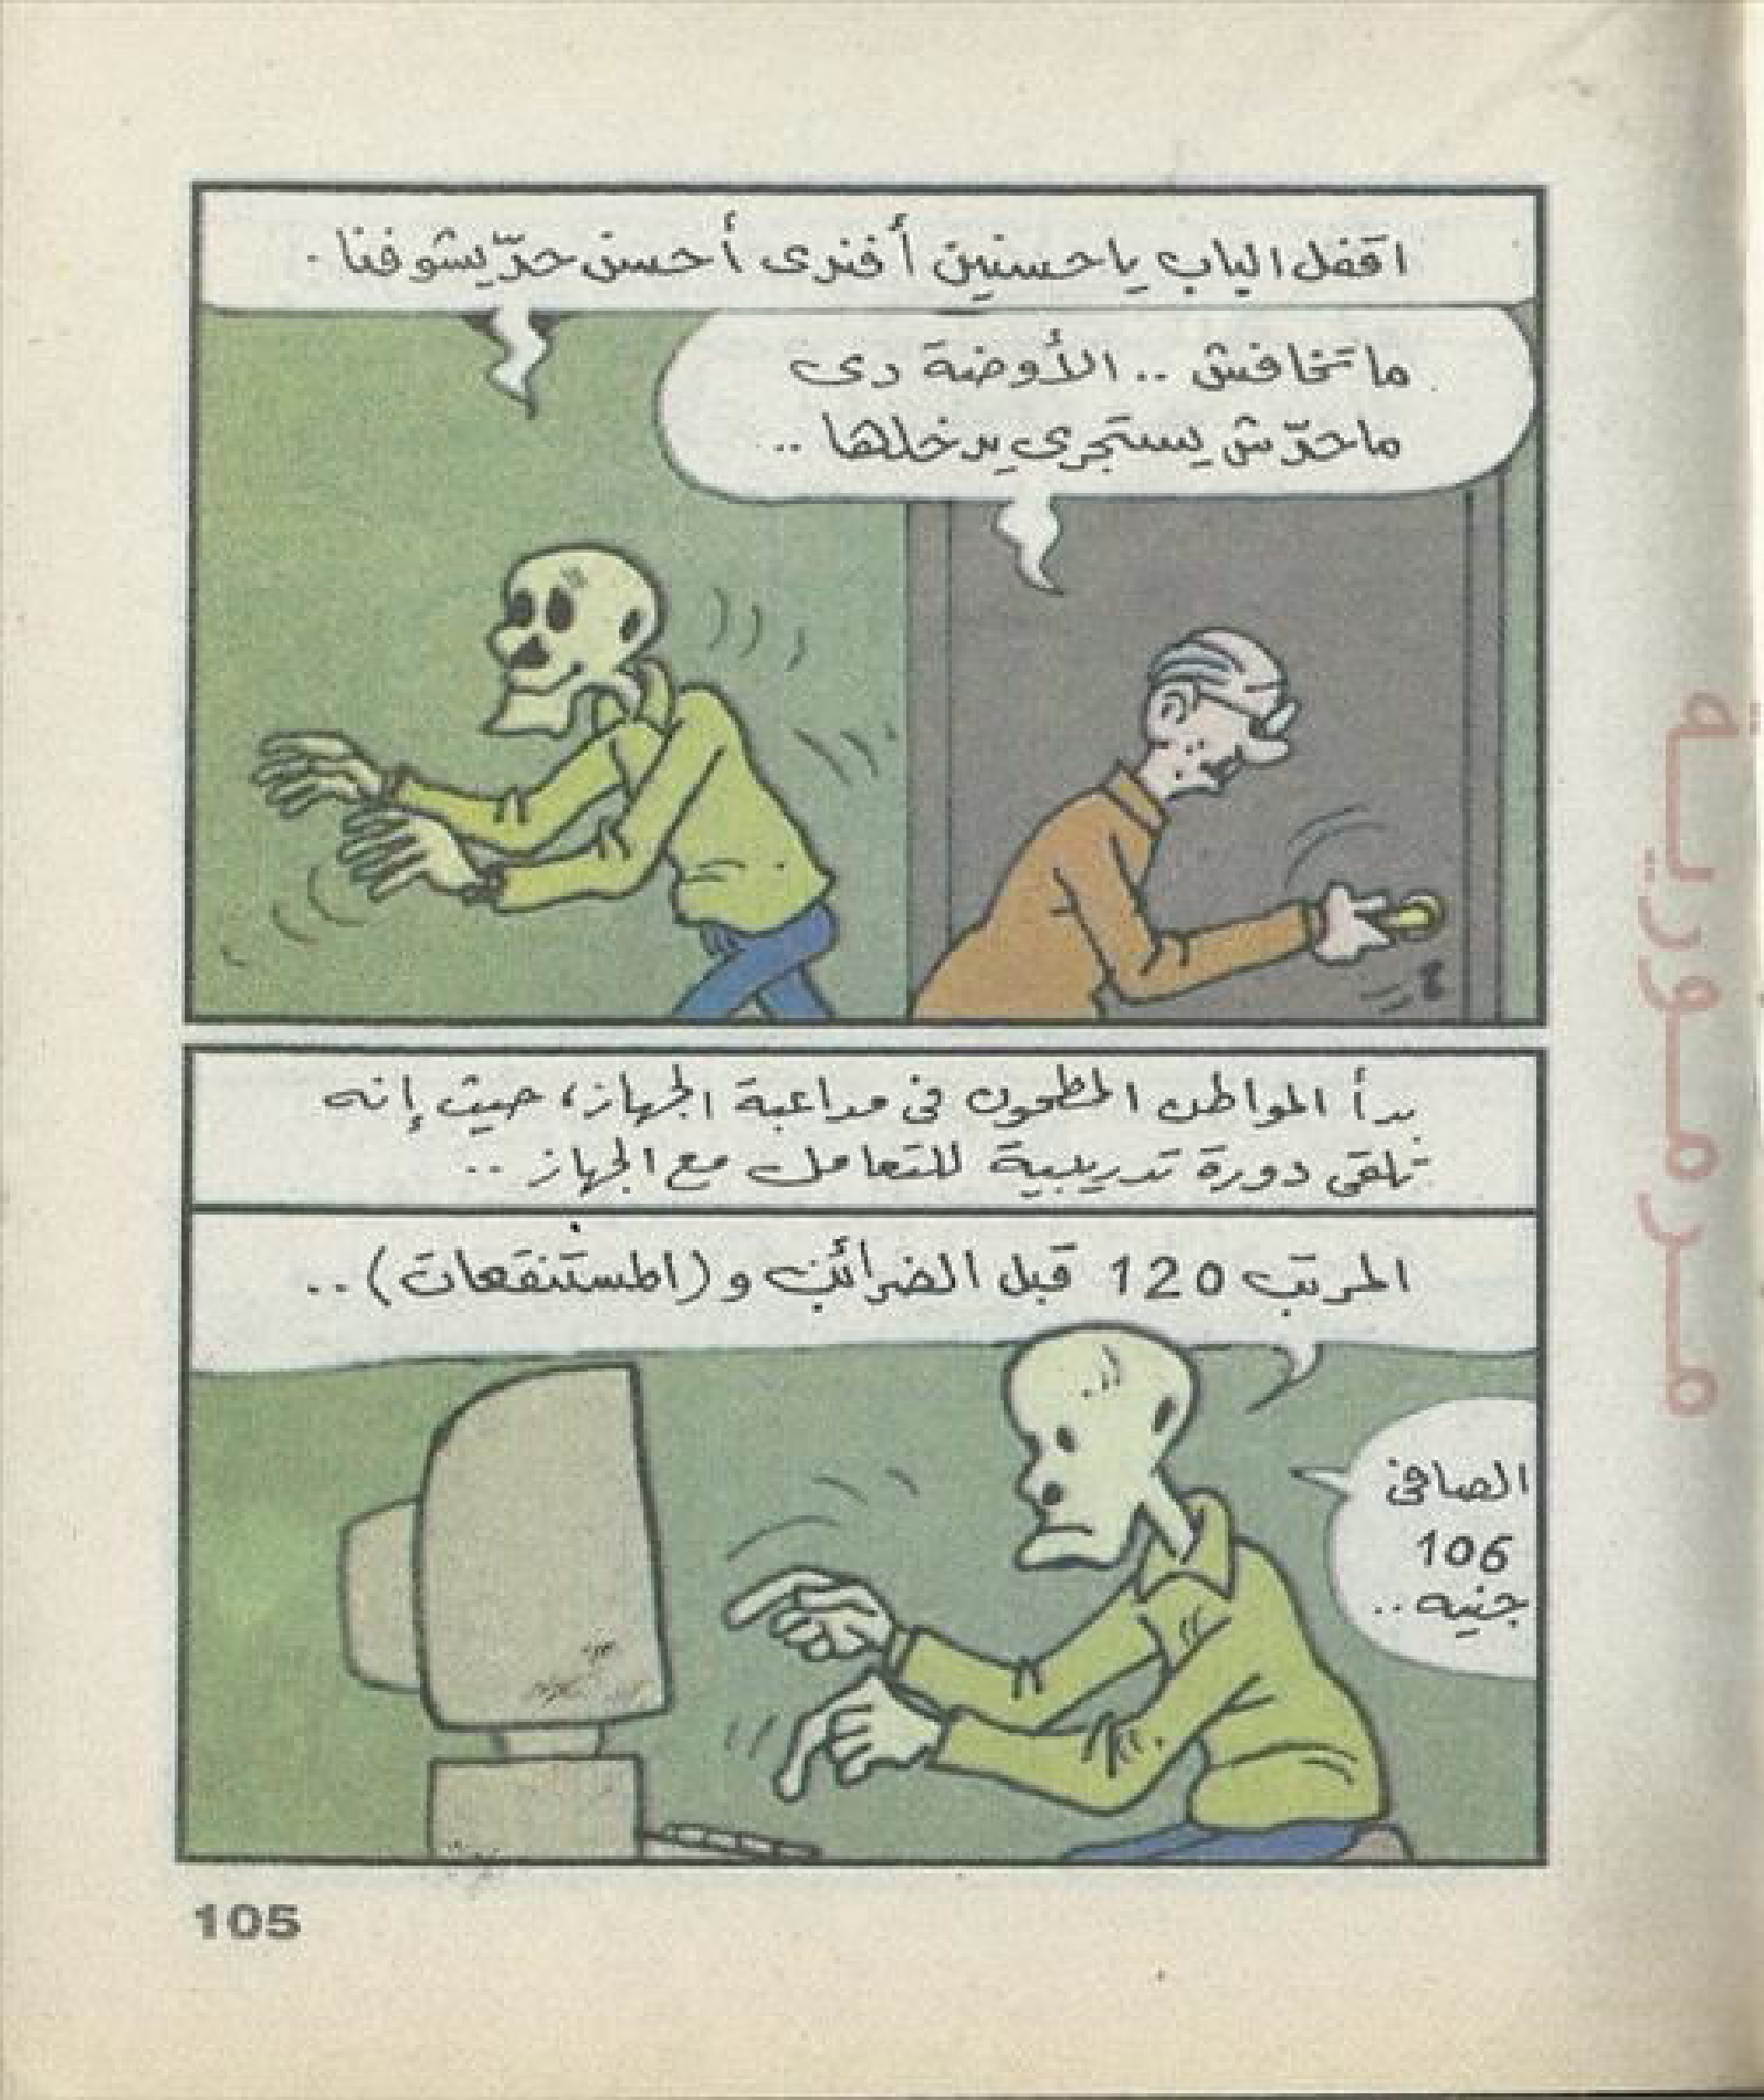 اقفل الباب ياحسنين أفندى أحسن حدّ يشوفنا .
ماتخافش .. الأوضة دى
ماحدّش يستجرى يدخلها ..
بدأ المواطن المطحون فى مداعبة الجهاز، حيث إنه
تلقى دورة تدريبية للتعامل مع الجهاز ..
المرتب 120 قبل الضرائب و (المستنقعات) ..
الصافى
106
جنيه ..
105
مرمورية